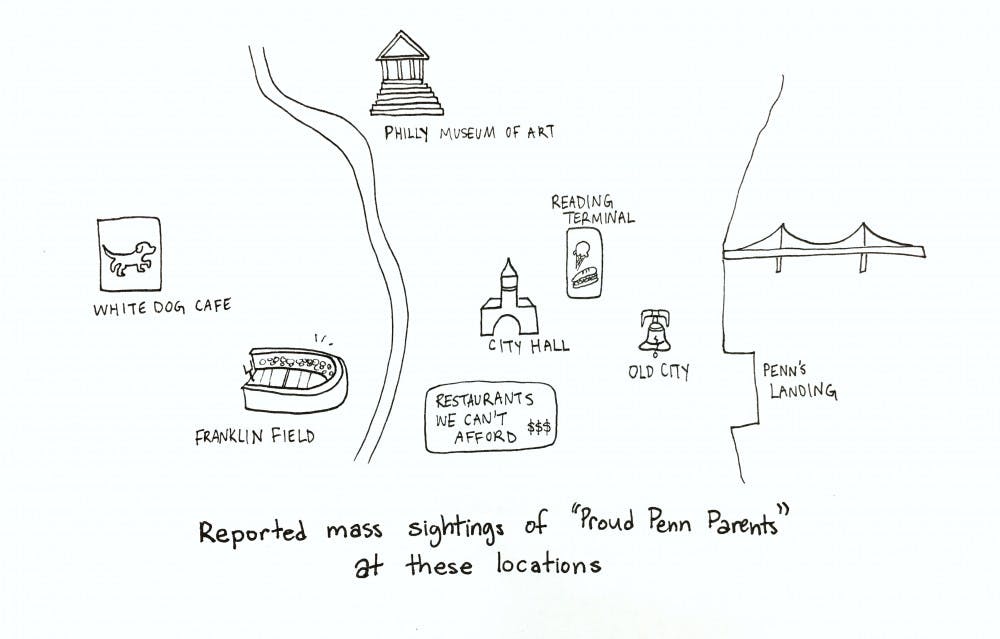 PHILLY MUSEUM OF ART
READING
TERMINAL
WHITE DOG CAFE
CITY HALL
OLD CITY
PENN'S
LANDING
RESTAURANTS
WE CAN'T
AFFORD $$$
FRANKLIN FIELD
Reported mass sightings of "Proud Penn Parents"
at these locations